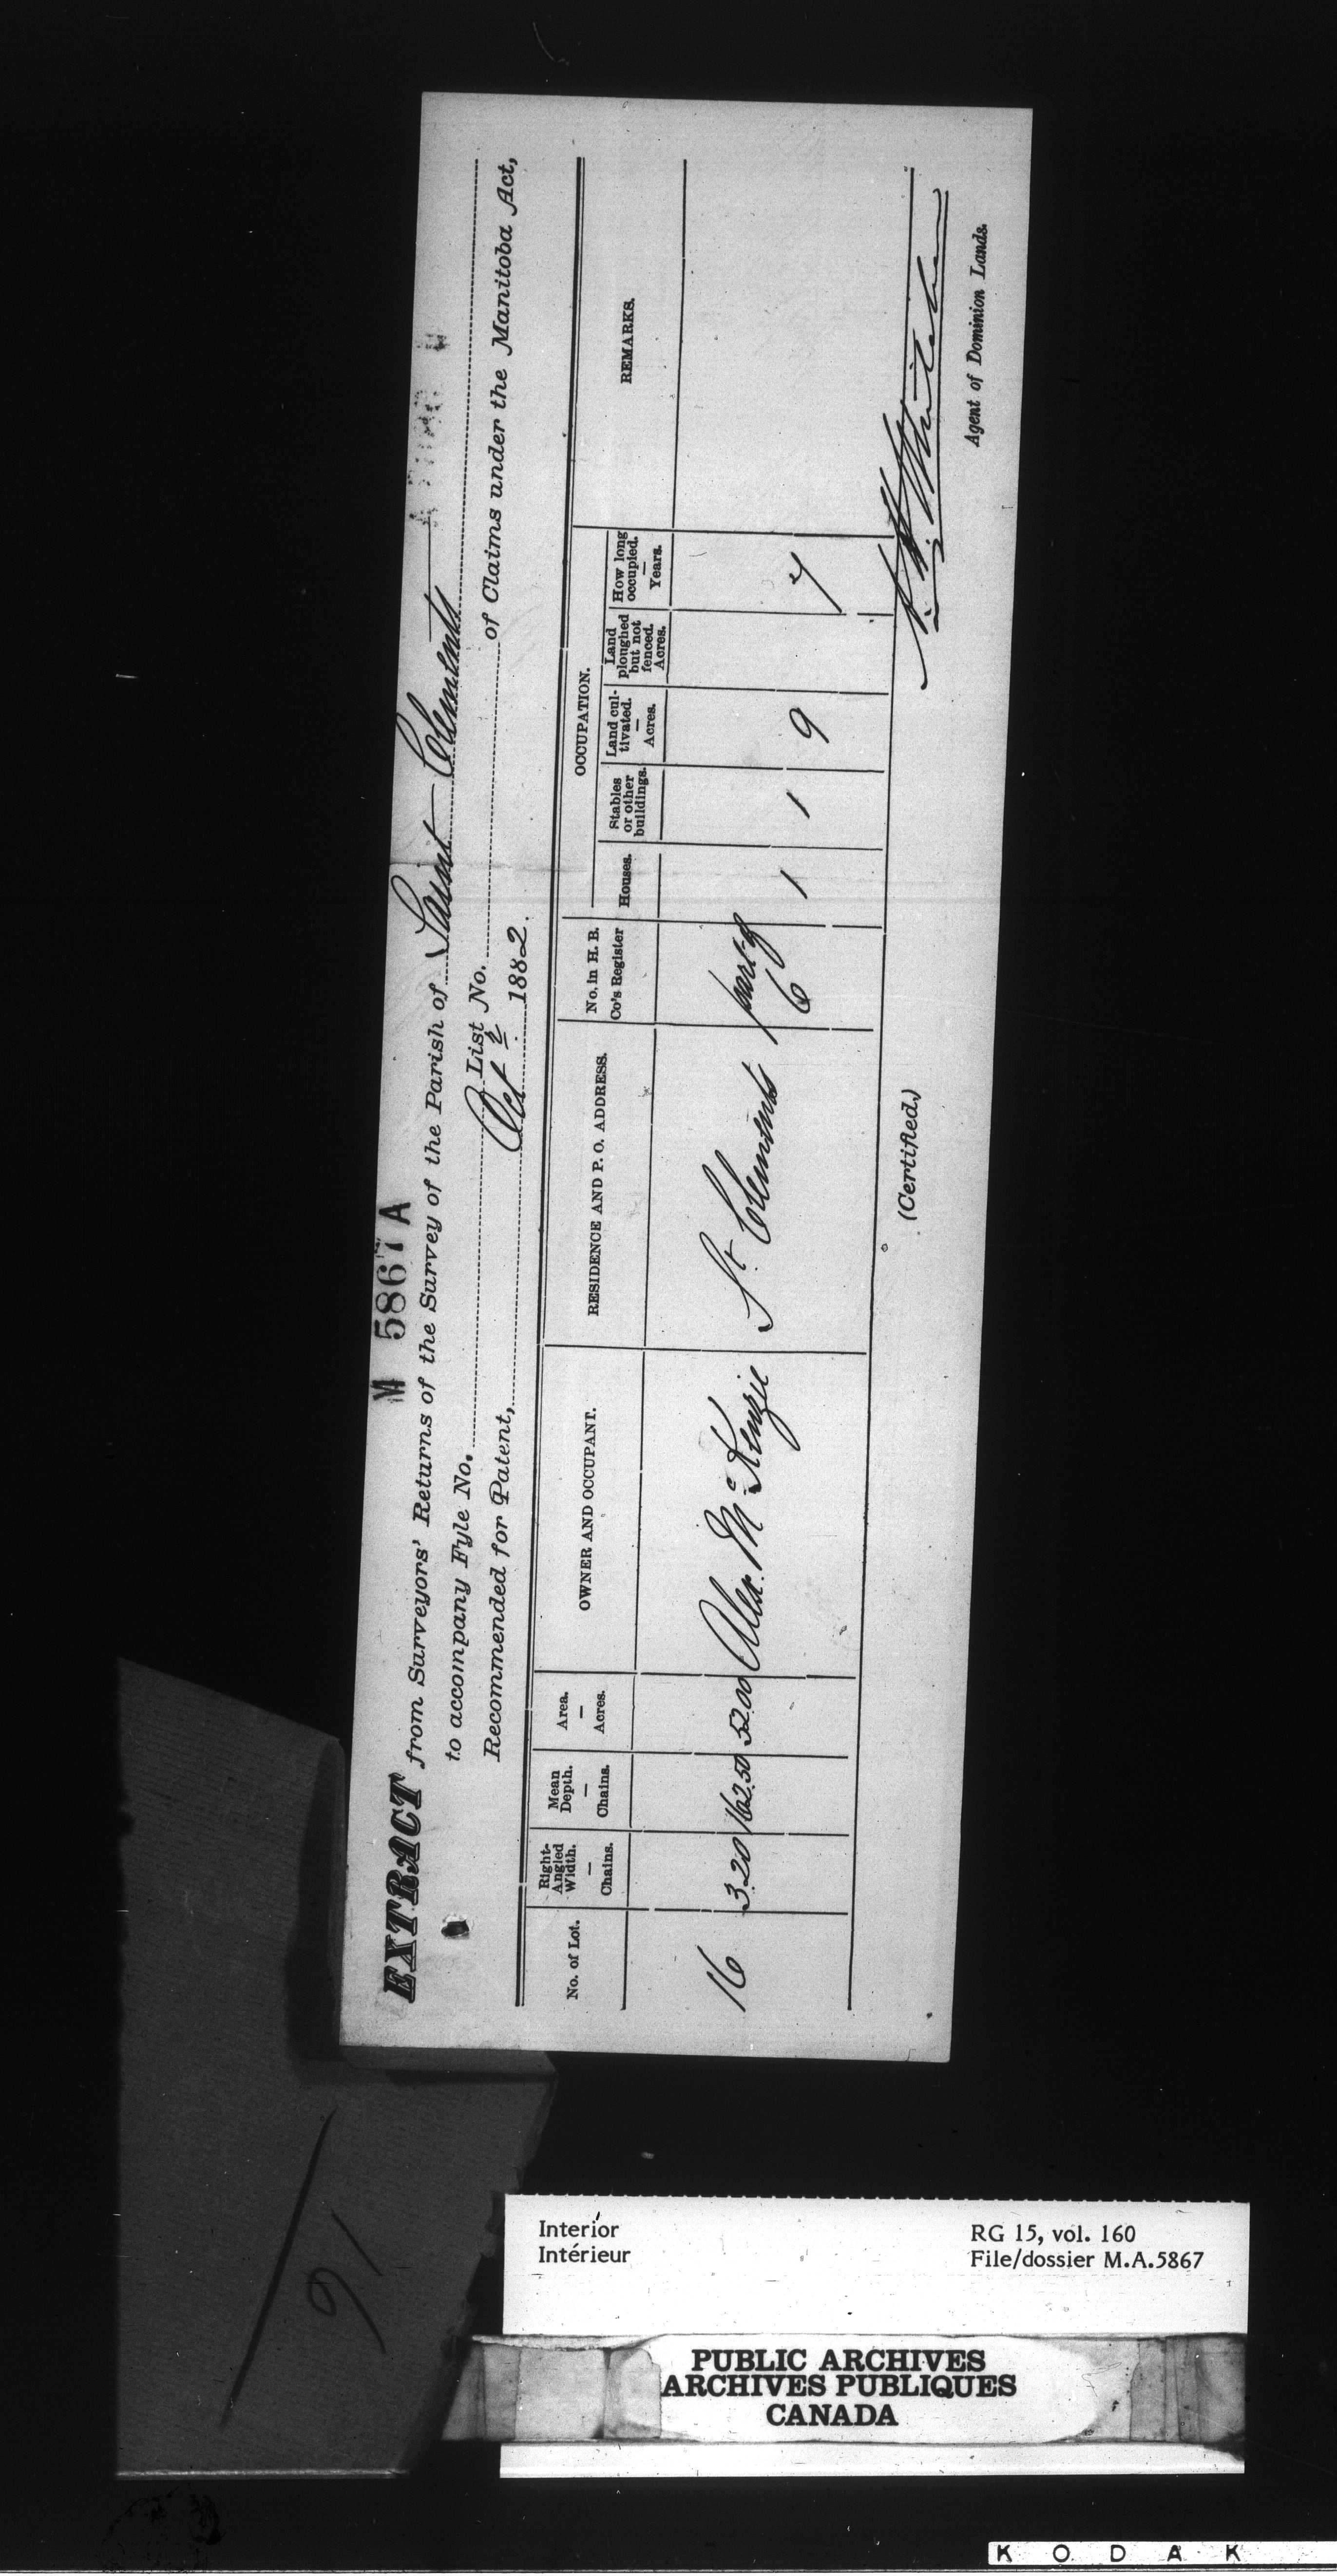 M 5867 A
EXTRACT from Surveyors' Returns of the Survey of the Parish of Saint Clements
to accompany Fyle No. List No. of Claims under the Manitoba Act,
Recommended for Patent, Oct 1882.
No. of Lot.
Right-Angled Width. — Chains.
Mean Depth. — Chains.
Area. — Acres.
OWNER AND OCCUPANT.
RESIDENCE AND P. O. ADDRESS.
No. in H. B. Co's Register
OCCUPATION.
Houses.
Stables or other buildings.
Land cultivated. — Acres.
Land ploughed but not fenced. Acres.
How long occupied. — Years.
REMARKS.
16 3.20 162.50 52.00 Alex. McKenzie St Clements part of 6 1 1 9 7
(Certified,)
Agent of Dominion Lands.
91
Interior
Intérieur
RG 15, vol. 160
File/dossier M.A.5867
PUBLIC ARCHIVES
ARCHIVES PUBLIQUES
CANADA
KODAK